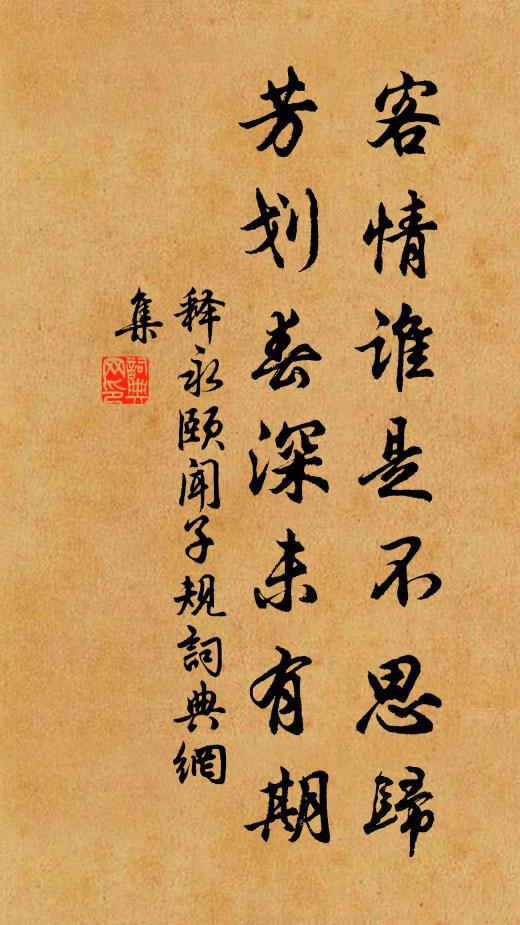 客情谁是不思歸
芳划春深未有期
释永颐闻子规詞典網
集
詞典网印